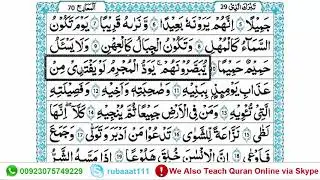 تبٰرك الذی 29 المعارج 70
جَمِيْلًا ۝٥ اِنَّهُمْ يَرَوْنَهٗ بَعِيْدًا ۝٦ وَّنَرٰىهُ قَرِيْبًا ۝٧ يَوْمَ تَكُوْنُ
السَّمَآءُ كَالْمُهْلِ ۝٨ وَتَكُوْنُ الْجِبَالُ كَالْعِهْنِ ۝٩ وَلَا يَسْـَٔلُ
حَمِيْمٌ حَمِيْمًا ۝١٠ يُّبَصَّرُوْنَهُمْ يَوَدُّ الْمُجْرِمُ لَوْ يَفْتَدِيْ مِنْ
عَذَابِ يَوْمِئِذٍۭ بِبَنِيْهِ ۝١١ وَصَاحِبَتِهٖ وَاَخِيْهِ ۝١٢ وَفَصِيْلَتِهِ
الَّتِيْ تُــْٔوِيْهِ ۝١٣ وَمَنْ فِي الْاَرْضِ جَمِيْعًا ثُمَّ يُنْجِيْهِ ۝١٤ كَلَّا
اِنَّهَا لَظٰى ۝١٥ نَزَّاعَةً لِّلشَّوٰى ۝١٦ تَدْعُوْا مَنْ اَدْبَرَ وَتَوَلّٰى ۝١٧ وَجَمَعَ
فَاَوْعٰى ۝١٨ اِنَّ الْاِنْسَانَ خُلِقَ هَلُوْعًا ۝١٩ اِذَا مَسَّهُ الشَّرُّ
00923075749229 rubaaat111 We Also Teach Quran Online via Skype